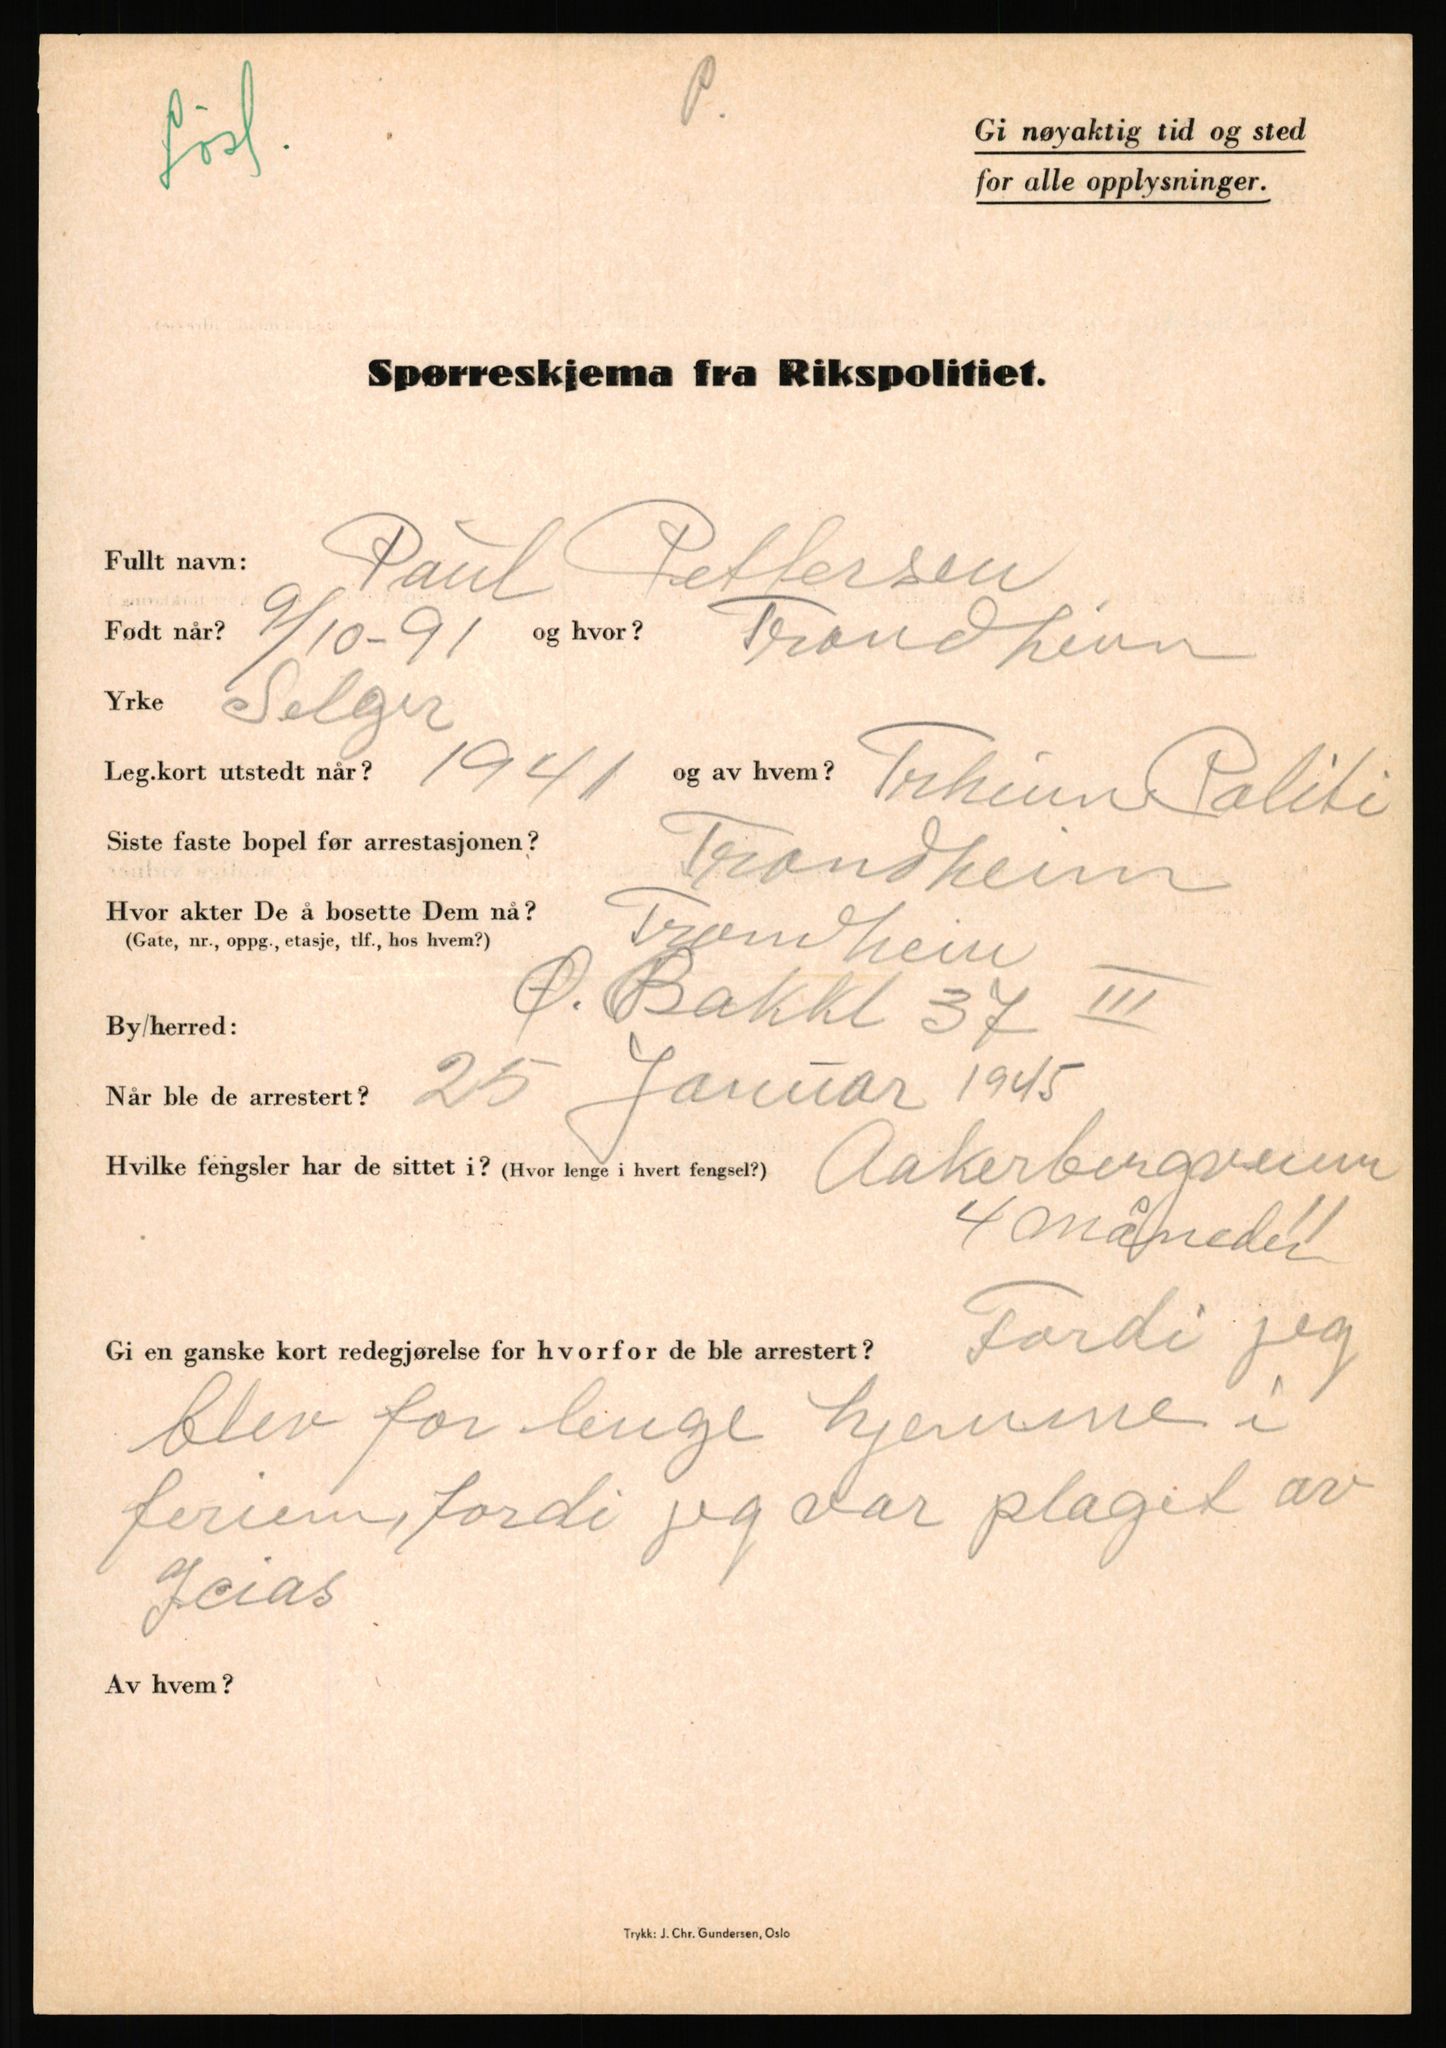 Løsl.
P.
Gi nøyaktig tid og sted
for alle opplysninger.
Spørreskjema fra Rikspolitiet.
Fullt navn: Paul Pettersen
Født når? 9/10-91 og hvor? Trondheim
Yrke Selger
Leg.kort utstedt når? 1941 og av hvem? Trheim Politi
Siste faste bopel før arrestasjonen? Trondheim
Hvor akter De å bosette Dem nå? Trondheim
(Gate, nr., oppg., etasje, tlf., hos hvem?)
Ø. Bakkl 37 III
By/herred:
Når ble de arrestert? 25 Januar 1945
Hvilke fengsler har de sittet i? (Hvor lenge i hvert fengsel?) Aakerbergveien
4 Måneder
Gi en ganske kort redegjørelse for hvorfor de ble arrestert? Fordi jeg
blev for lenge hjemme i
ferien, fordi jeg var plaget av
Icias
Av hvem?
Trykk: J. Chr. Gundersen, Oslo